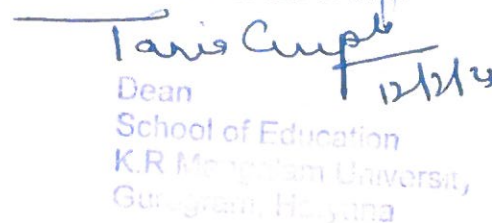 Gupta
12/2/25
Dean
School of Education
K.R Mangalam University,
Gurugram, Haryana